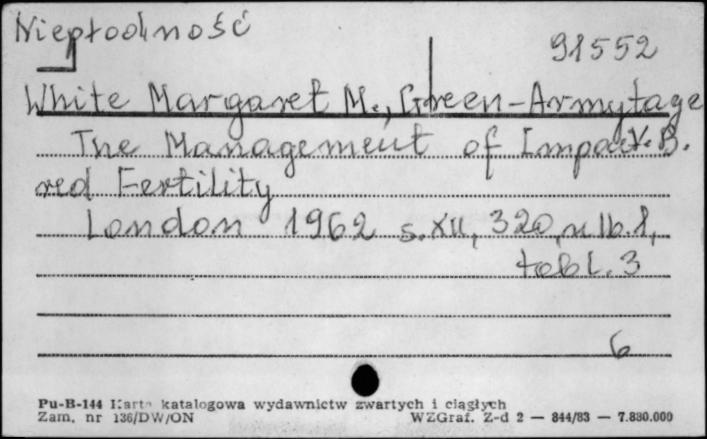 Niepłodność
91552
White Margaret M., Green-Armytage
V.B.
The Management of Impai-
red Fertility
London 1962 s. XII, 320, nlb. 1,
tabl. 3
6
Pu-B-144 Karta katalogowa wydawnictw zwartych i ciągłych
Zam. nr 136/DW/ON WZGraf. Z-d 2 — 844/83 — 7.830.000